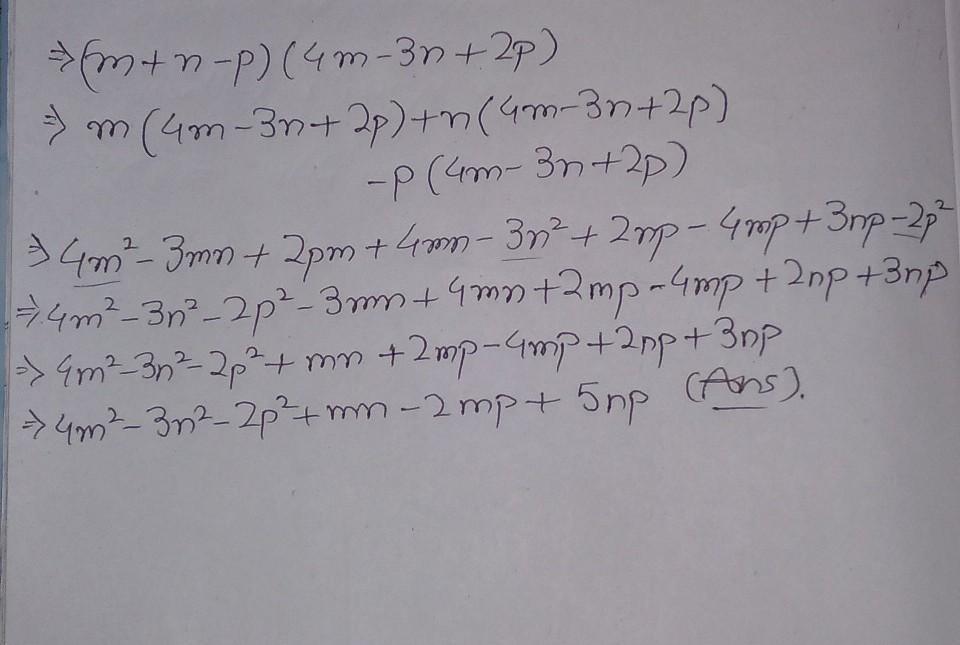 ⇒ (m+n-p) (4m-3n+2p)
⇒ m (4m-3n+2p)+n(4m-3n+2p)
-p (4m-3n+2p)
⇒ 4m²-3mn+2pm+4mn-3n²+2np-4mp+3np-2p²
⇒ 4m²-3n²-2p²-3mn+4mn+2mp-4mp+2np+3np
⇒ 4m²-3n²-2p²+mn+2mp-4mp+2np+3np
⇒ 4m²-3n²-2p²+mn-2mp+5np (Ans).